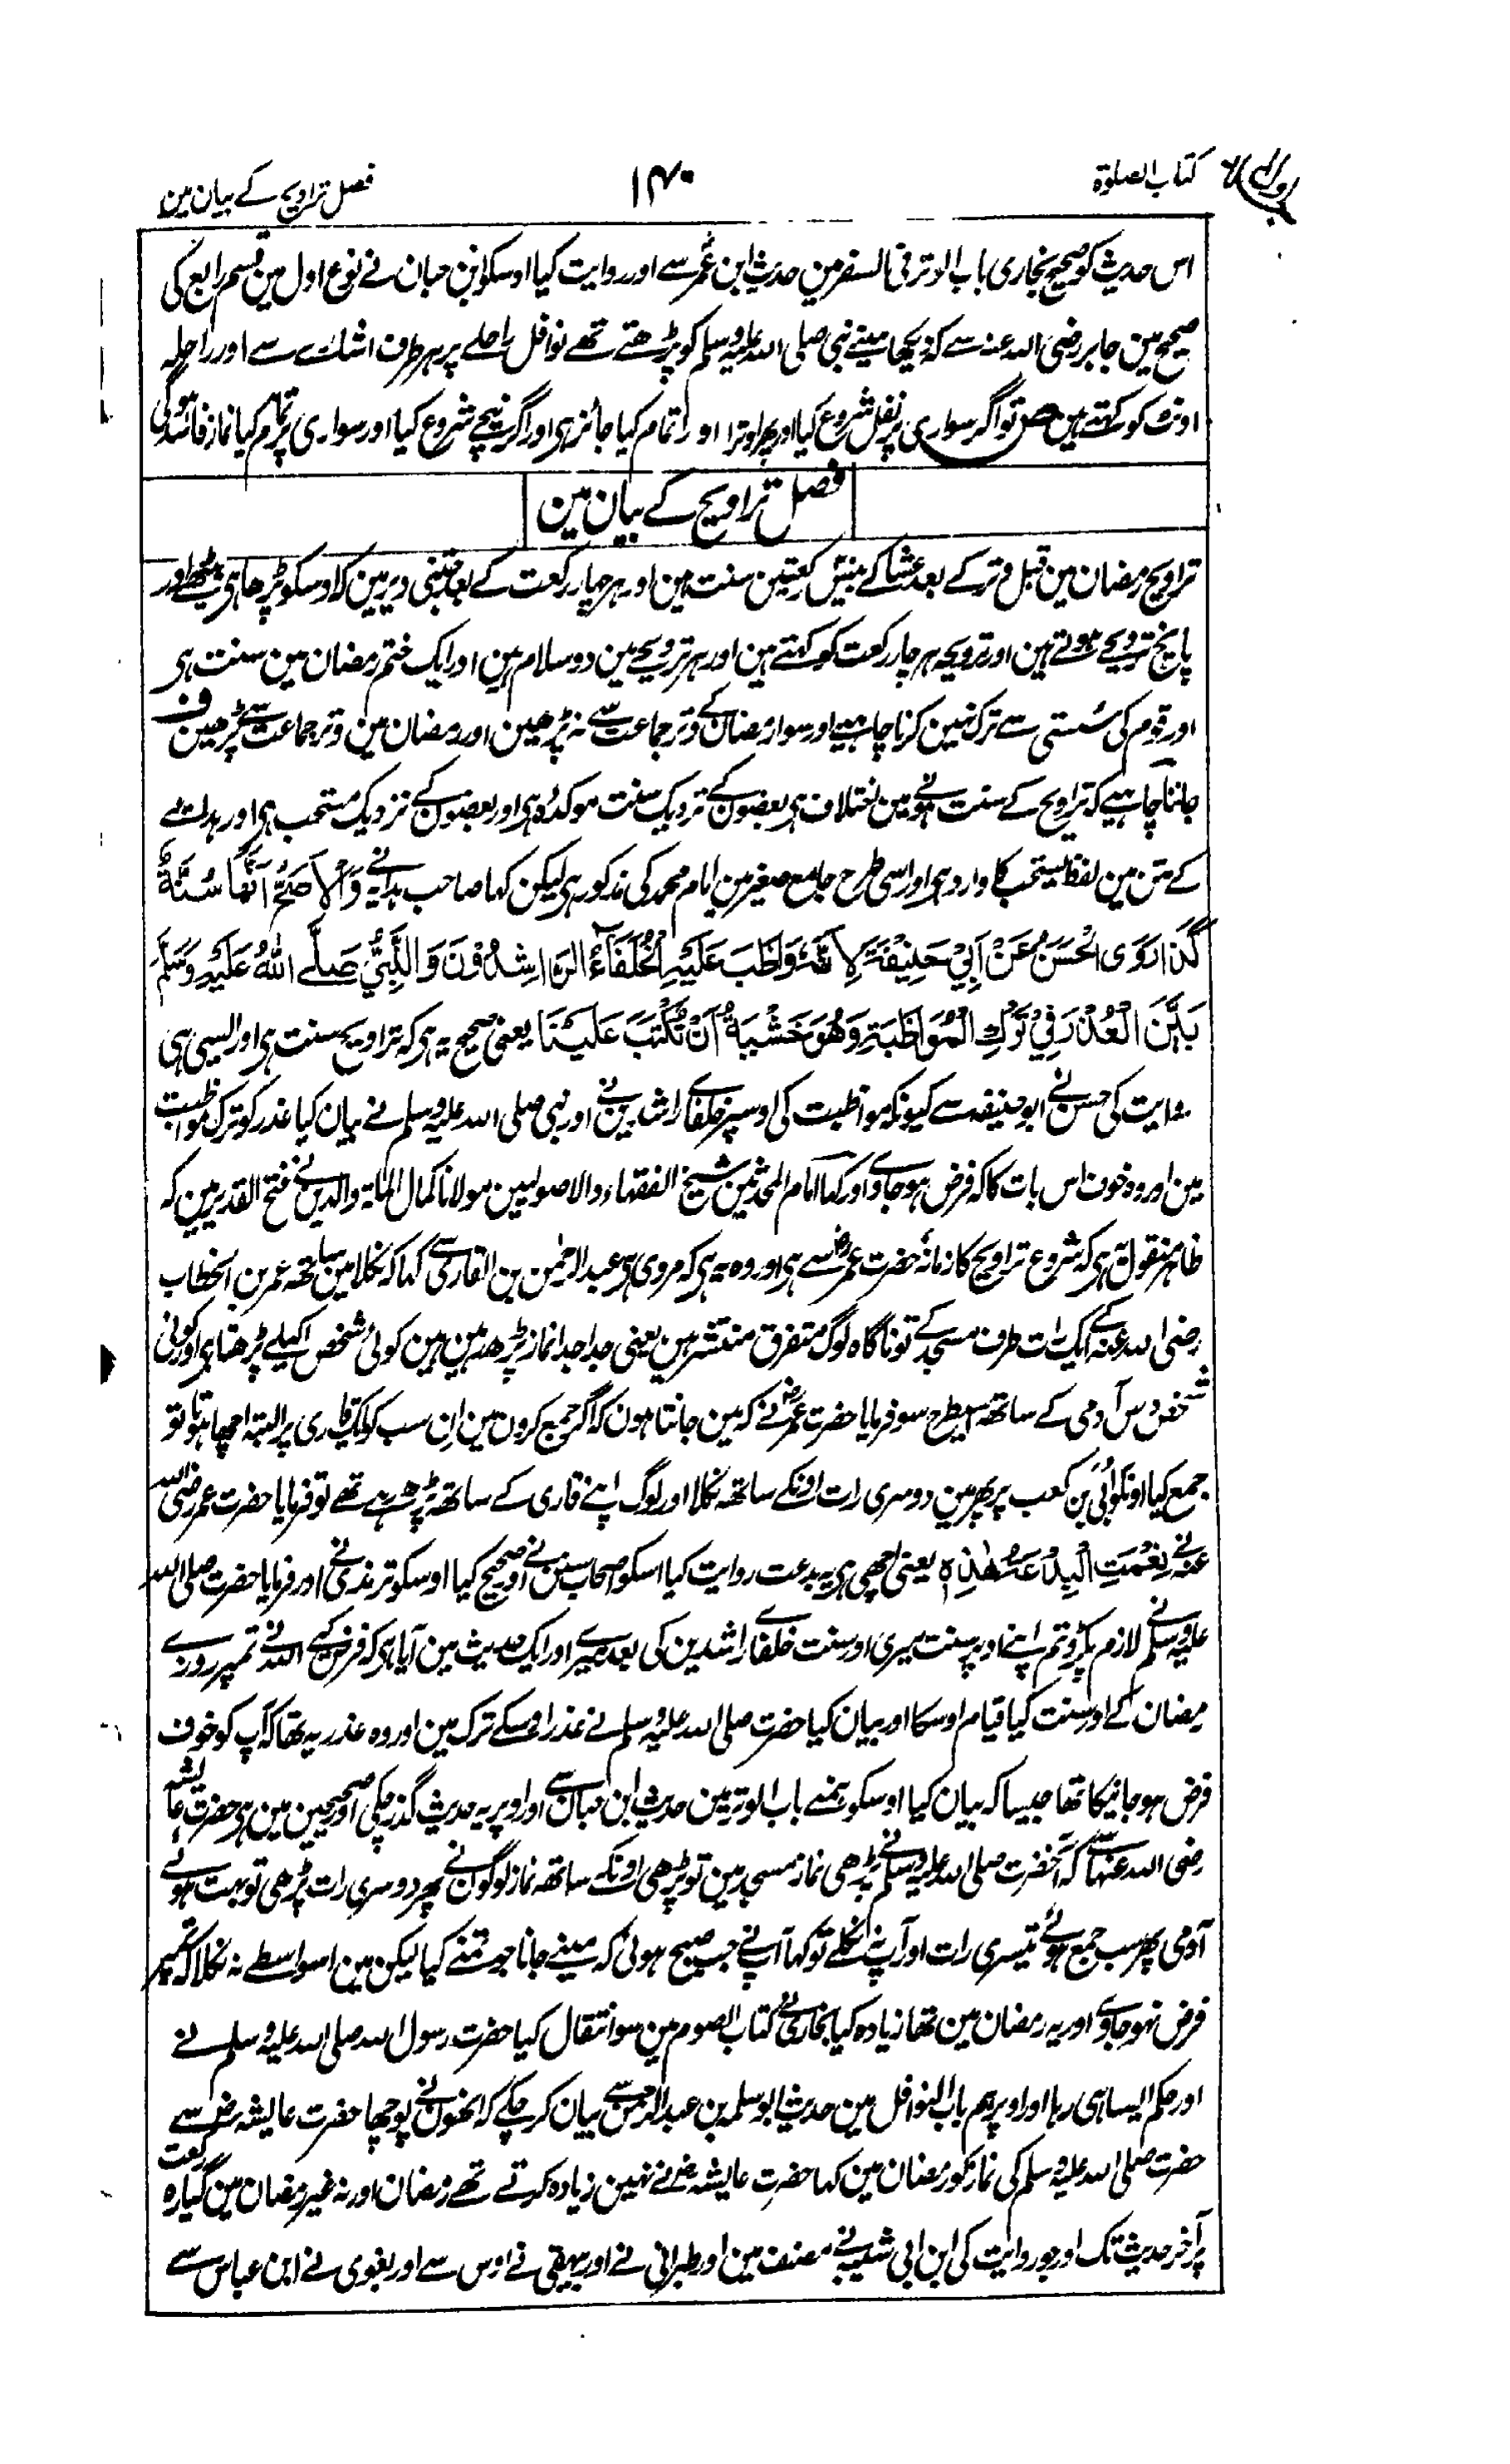 کتاب الصلوة
۱۴۰
فصل تراویح کے بیان مین
اس حدیث کو صحیح بخاری باب الوتر فی السفر مین حدیث ابن عمر سے اور روایت کیا اوسکو ابن حبان نے نوع اول مین قسم رابع کی
صحیح مین جابر رضی اللہ عنہ سے کہ دیکھا مینے نبی صلی اللہ علیہ وسلم کو پڑھتے تھے نوافل راحلے پر ہر طرف اشارے سے اور راحلہ
اونٹ کو کہتے ہین ص تو اگر سواری پر نفل شروع کیا اور پھر اوترا اور تمام کیا جائز ہی اور اگر نیچے شروع کیا اور سواری پر تمام کیا نماز فاسد ہوگی
فصل تراویح کے بیان مین
تراویح رمضان مین قبل وتر کے بعد عشا کے بیس رکعتین سنت ہین اور ہر چار رکعت کے بعد جتنی دیر مین کہ اوسکو پڑھا ہی بیٹھے اور
پانچ ترویحے ہوتے ہین اور ترویحہ ہر چار رکعت کو کہتے ہین اور ہر ترویحے مین دو سلام ہین اور ایک ختم رمضان مین سنت ہی
اور قوم کی سستی سے ترک نہین کرنا چاہیے اور سوا رمضان کے وتر جماعت سے نہ پڑھین اور رمضان مین وتر جماعت سے پڑھین ف
جاننا چاہیے کہ تراویح کے سنت ہونے مین اختلاف ہی بعضون کے نزدیک سنت موکدہ ہی اور بعضون کے نزدیک مستحب ہی اور ہدایے
کے متن مین لفظ یستحب کا وارد ہی اور اسی طرح جامع صغیر مین امام محمد کی مذکور ہی لیکن کہا صاحب ہدایہ نے وَالْاَصَحُّ اَنَّهَا سُنَّةٌ
كَذَا رَوَى الْحَسَنُ عَنْ اَبِيْ حَنِيْفَةَ لِاَنَّهُ وَاظَبَ عَلَيْهِ الْخُلَفَآءُ الرَّاشِدُوْنَ وَالنَّبِيُّ صَلَّى اللهُ عَلَيْهِ وَسَلَّمَ
بَيَّنَ الْعُذْرَ فِيْ تَرْكِ الْمُوَاظَبَةِ وَهُوَ خَشْيَةُ اَنْ تُكْتَبَ عَلَيْنَا یعنی صحیح یہ ہی کہ تراویح سنت ہی اور ایسی ہی
روایت کی حسن نے ابو حنیفہ سے کیونکہ مواظبت کی اوسپر خلفاے راشدین نے اور نبی صلی اللہ علیہ وسلم نے بیان کیا عذر کو ترک مواظبت
مین اور وہ خوف اس بات کا کہ فرض ہو جاوے اور کہا امام المحدثین شیخ الفقہاء والاصولیین مولانا کمال الملۃ والدین نے فتح القدیر مین کہ
ظاہر منقول یہ ہی کہ شروع تراویح کا زمانۂ حضرت عمرؓ سے ہی اور وہ یہ ہی کہ مروی ہی عبدالرحمٰن بن القاری سے کہا کہ نکلا مین ساتھ عمر بن الخطاب
رضی اللہ عنہ کے ایک رات طرف مسجد کے تو ناگاہ لوگ متفرق منتشر ہین یعنی جدا جدا نماز پڑھ رہین ہین کوئی شخص اکیلے پڑھتا ہی اور کوئی
شخص دس آدمی کے ساتھ اسیطرح سو فرمایا حضرت عمرؓ نے کہ مین جانتا ہون کہ اگر جمع کرون مین ان سب کو ایک قاری پر البتہ اچھا ہوتا تو
جمع کیا اونکو اُبی بن کعب پر پھر مین دوسری رات اونکے ساتھ نکلا اور لوگ اپنے قاری کے ساتھ پڑھ رہے تھے تو فرمایا حضرت عمر رضی اللہ
عنہ نے نِعْمَتِ الْبِدْعَةُ هٰذِهٖ یعنی اچھی ہی یہ بدعت روایت کیا اسکو اصحاب سنن نے اور صحیح کیا اوسکو ترمذی نے اور فرمایا حضرت صلی اللہ
علیہ وسلم نے لازم پکڑو تم اپنے اوپر سنت میری اور سنت خلفاے راشدین کی بعد میرے اور ایک حدیث مین آیا ہی کہ فرض کیے اللہ نے تمپر روزے
رمضان کے اور سنت کیا قیام اوسکا اور بیان کیا حضرت صلی اللہ علیہ وسلم نے عذر اوسکے ترک مین اور وہ عذر یہ تھا کہ آپ کو خوف
فرض ہو جانیکا تھا جیسا کہ بیان کیا اوسکو ہمنے باب الوتر مین حدیث ابن حبان سے اور اوپر یہ حدیث گذر چکی اور صحیحین مین ہی حضرت عایشہ
رضی اللہ عنہا سے کہ آنحضرت صلی اللہ علیہ وسلم نے پڑھی نماز مسجد مین تو پڑھی اونکے ساتھ نماز لوگون نے پھر دوسری رات پڑھی تو بہت ہوے
آدمی پھر سب جمع ہوئے تیسری رات اور آپ نہ نکلے تو کہا آپ نے جب صبح ہوئی کہ مینے جانا جو تمنے کیا لیکن مین اسواسطے نہ نکلا کہ تمپر
فرض نہوجاوے اور یہ رمضان مین تھا زیادہ کیا بخاری نے کتاب الصوم مین سو انتقال کیا حضرت رسول اللہ صلی اللہ علیہ وسلم نے
اور حکم ایسا ہی رہا اور اوپر ہم باب النوافل مین حدیث ابو سلمہ بن عبدالرحمن سے بیان کر چکے کہ انھون نے پوچھا حضرت عایشہ رض سے
حضرت صلی اللہ علیہ وسلم کی نماز کو رمضان مین کہا حضرت عایشہ رض نے نہین زیادہ کرتے تھے رمضان اور نہ غیر رمضان مین گیارہ رکعت
پر آخر حدیث تک اور جو روایت کی ابن ابی شیبہ نے مصنف مین اور طبرانی نے اور بیہقی نے اوس سے اور بغوی نے ابن عباس سے